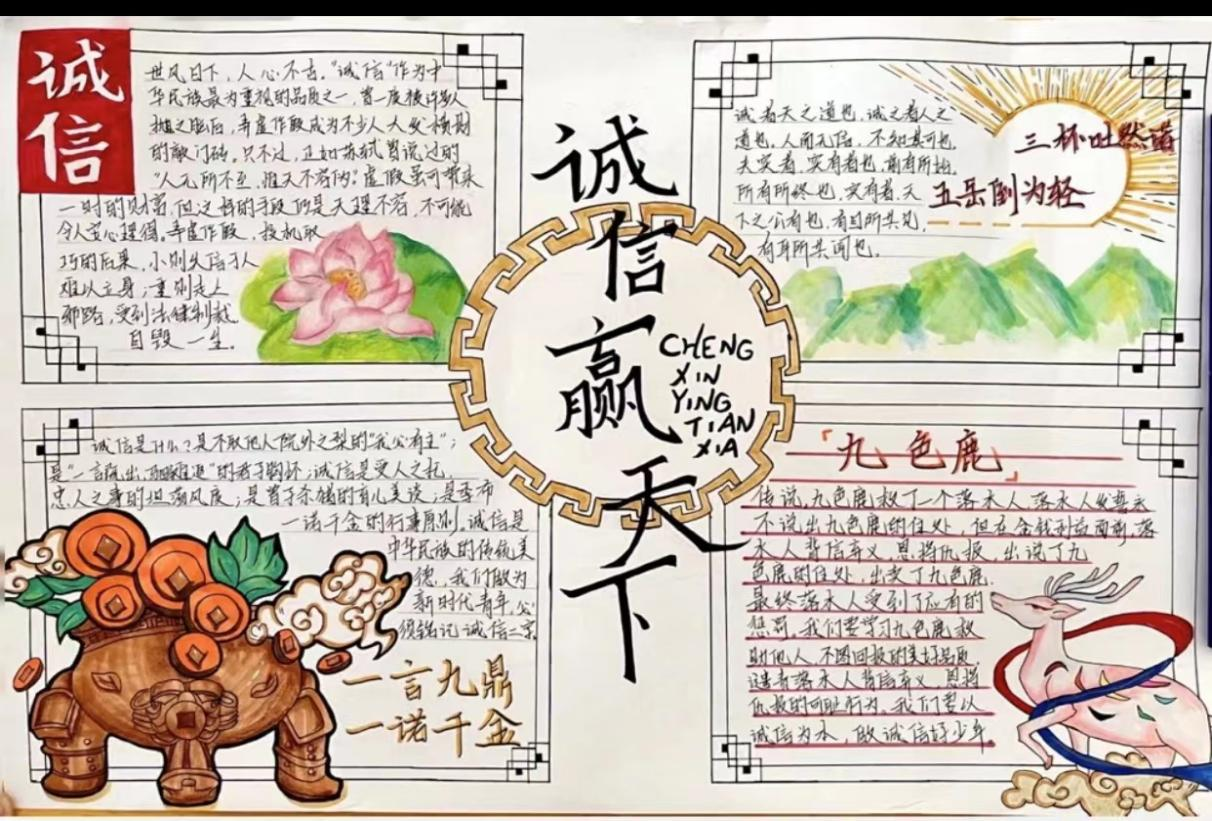 诚
信
世风日下，人心不古。"诚信"作为中
华民族最为重视的品质之一，曾一度被许多人
抛之脑后，弄虚作假成为不少人大发横财
的敲门砖。只不过，正如苏轼曾说过的
"人无所不至，惟天不容伪。"虚假虽可带来
一时的财富，但这样的手段仍是天理不容，不可能
令人安心理得。弄虚作假，投机取
巧的后果，小则失信于人
难以立身；重则走入
邪路，受到法律制裁
自毁一生。
诚
信
赢
天
下
CHENG
XIN
YING
TIAN
XIA
诚者天之道也，诚之者人之
道也。人而无信，不知其可也。
夫实者，实有者也，前有所始，
所有所终也，实有者，天
下之公有也，有目所共见，
有耳所共闻也。
三杯吐然诺
五岳倒为轻
诚信是什么？是不取他人院外之梨的"我心有主"；
是"一言既出，驷马难追"的君子胸怀；诚信是受人之托，
忠人之事的坦荡风度；是曾子杀猪的育儿美谈；是季布
一诺千金的行事原则。诚信是
中华民族的传统美
德，我们做为
新时代青年，必
须铭记诚信二字
一言九鼎
一诺千金
「九色鹿」
传说，九色鹿救了一个落水人，落水人发誓永
不说出九色鹿的住处，但在金钱利益面前，落
水人背信弃义，恩将仇报，出说了九
色鹿的住处，出卖了九色鹿.
最终落水人受到了应有的
惩罚。我们要学习九色鹿救
助他人，不图回报的美好品质，
谴责落水人背信弃义，恩将
仇报的可耻行为，我们要以
诚信为本，做诚信好少年